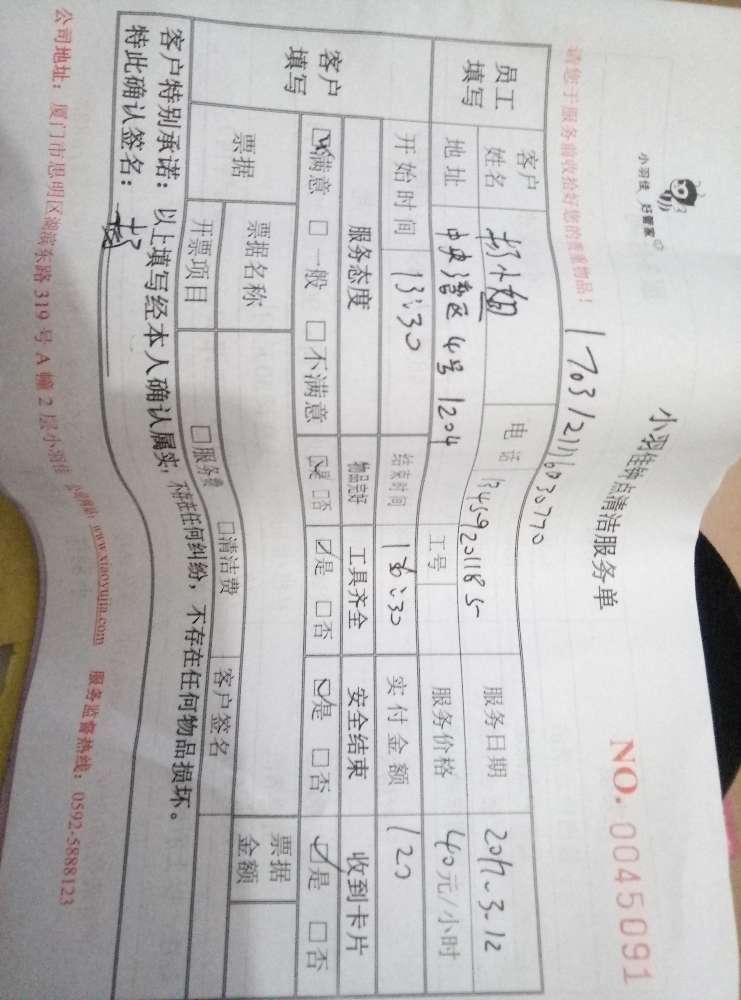 小羽佳 好管家
小羽佳钟点清洁服务单
NO. 0045091
请您于服务前收拾好您的贵重物品!
员工填写 客户姓名 小姐 电话 服务日期 2017.3.12
地址 中央湾区4号1204 工号 服务价格 40元/小时
开始时间 13:30 结束时间 实付金额 120
客户填写 服务态度 物品完好 工具齐全 安全结束 收到卡片
☑满意 □一般 □不满意 ☑是 □否 ☑是 □否 ☑是 □否 ☑是 □否
票据 票据名称 客户签名 票据金额
开票项目 □服务费 □清洁费
客户特别承诺:以上填写经本人确认属实,不存在任何纠纷,不存在任何物品损坏。
特此确认签名:
公司地址:厦门市思明区湖滨东路319号A幢2层小羽佳 公司网站:www.xiaoyujia.com 服务监督热线:0592-5888123